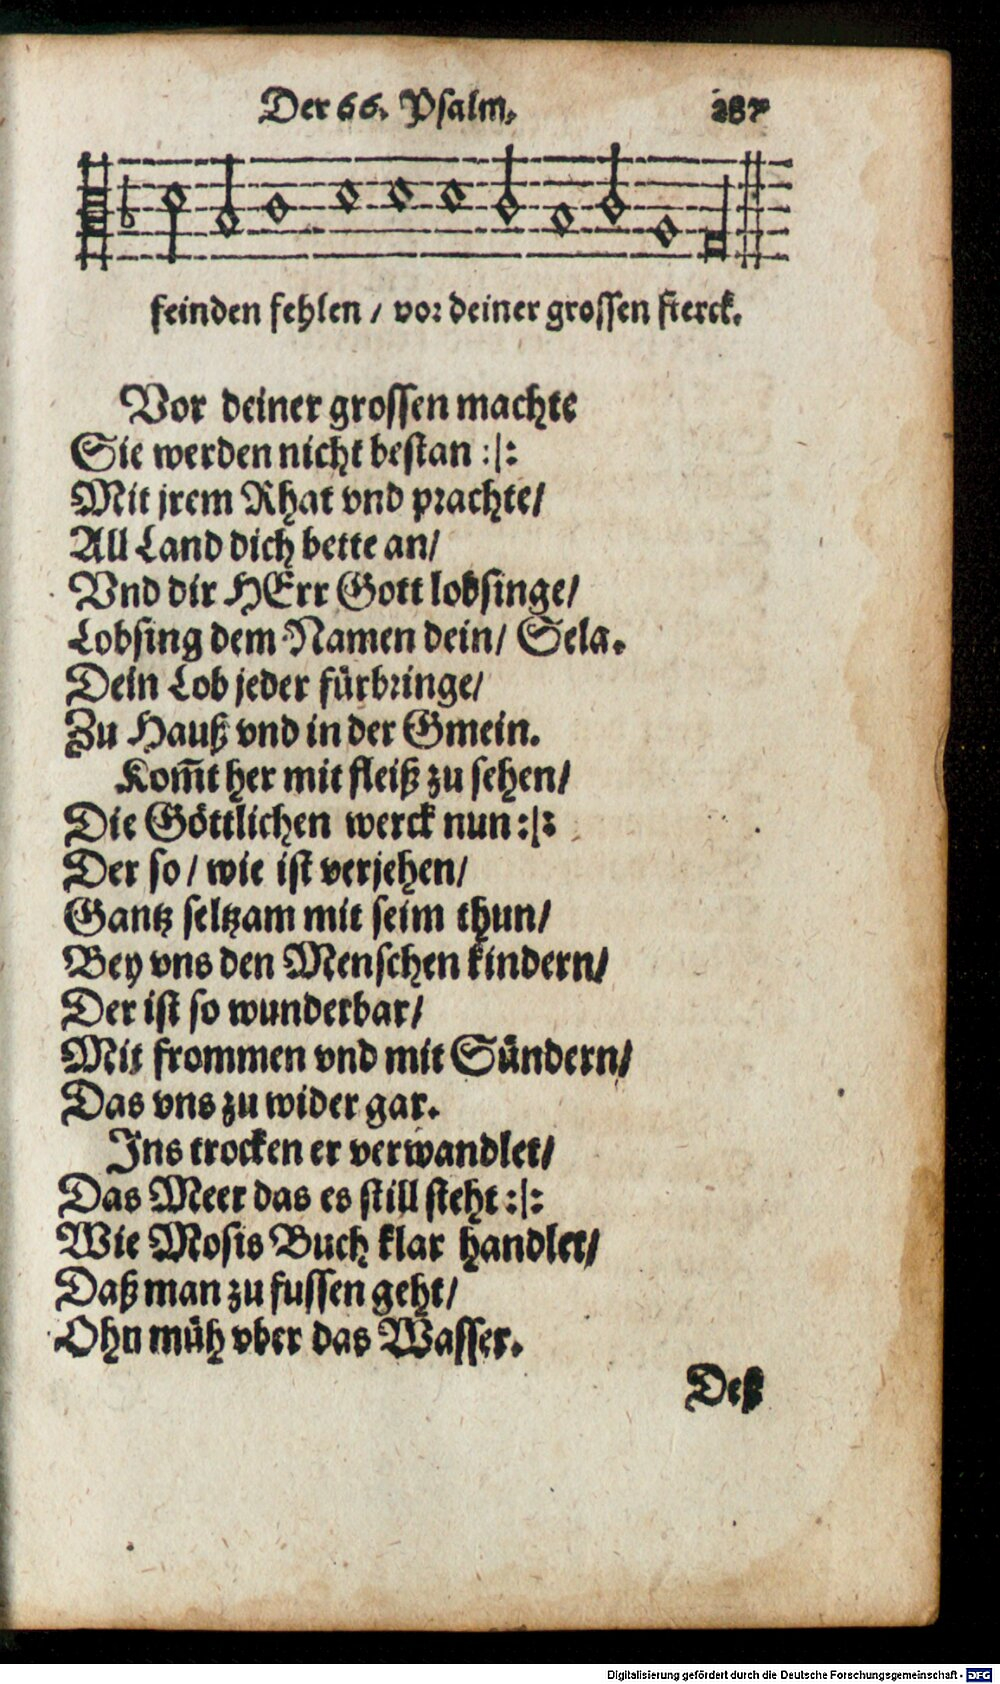 Der 66. Psalm. 287
feinden fehlen / vor deiner grossen sterck.
Vor deiner grossen machte
Sie werden nicht bestan :|:
Mit jrem Rhat vnd prachte/
All Land dich bette an/
Vnd dir HErr Gott lobsinge/
Lobsing dem Namen dein/ Sela.
Dein Lob jeder fürbringe/
Zu Hauß vnd in der Gmein.
Kom̃t her mit fleiß zu sehen/
Die Göttlichen werck nun :|:
Der so / wie ist verjehen/
Gantz seltzam mit seim thun/
Bey vns den Menschen kindern/
Der ist so wunderbar/
Mit frommen vnd mit Sündern/
Das vns zu wider gar.
Ins trocken er verwandlet/
Das Meer das es still steht :|:
Wie Mosis Buch klar handlet/
Daß man zu fussen geht/
Ohn müh vber das Wasser.
Deß
Digitalisierung gefördert durch die Deutsche Forschungsgemeinschaft - DFG